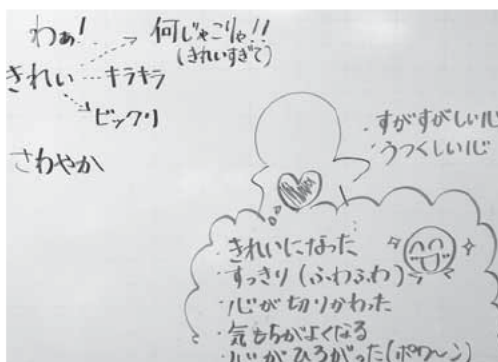 わぁ!
何じゃこりゃ!!
(きれいすぎて)
きれい
キラキラ
ビックリ
さわやか
・すがすがしい心
・うつくしい心
・きれいになった
・すっきり(ふわふわ)
・心が切りかわった
・気もちがよくなる
・心がひろがった(ポワ〜ン)